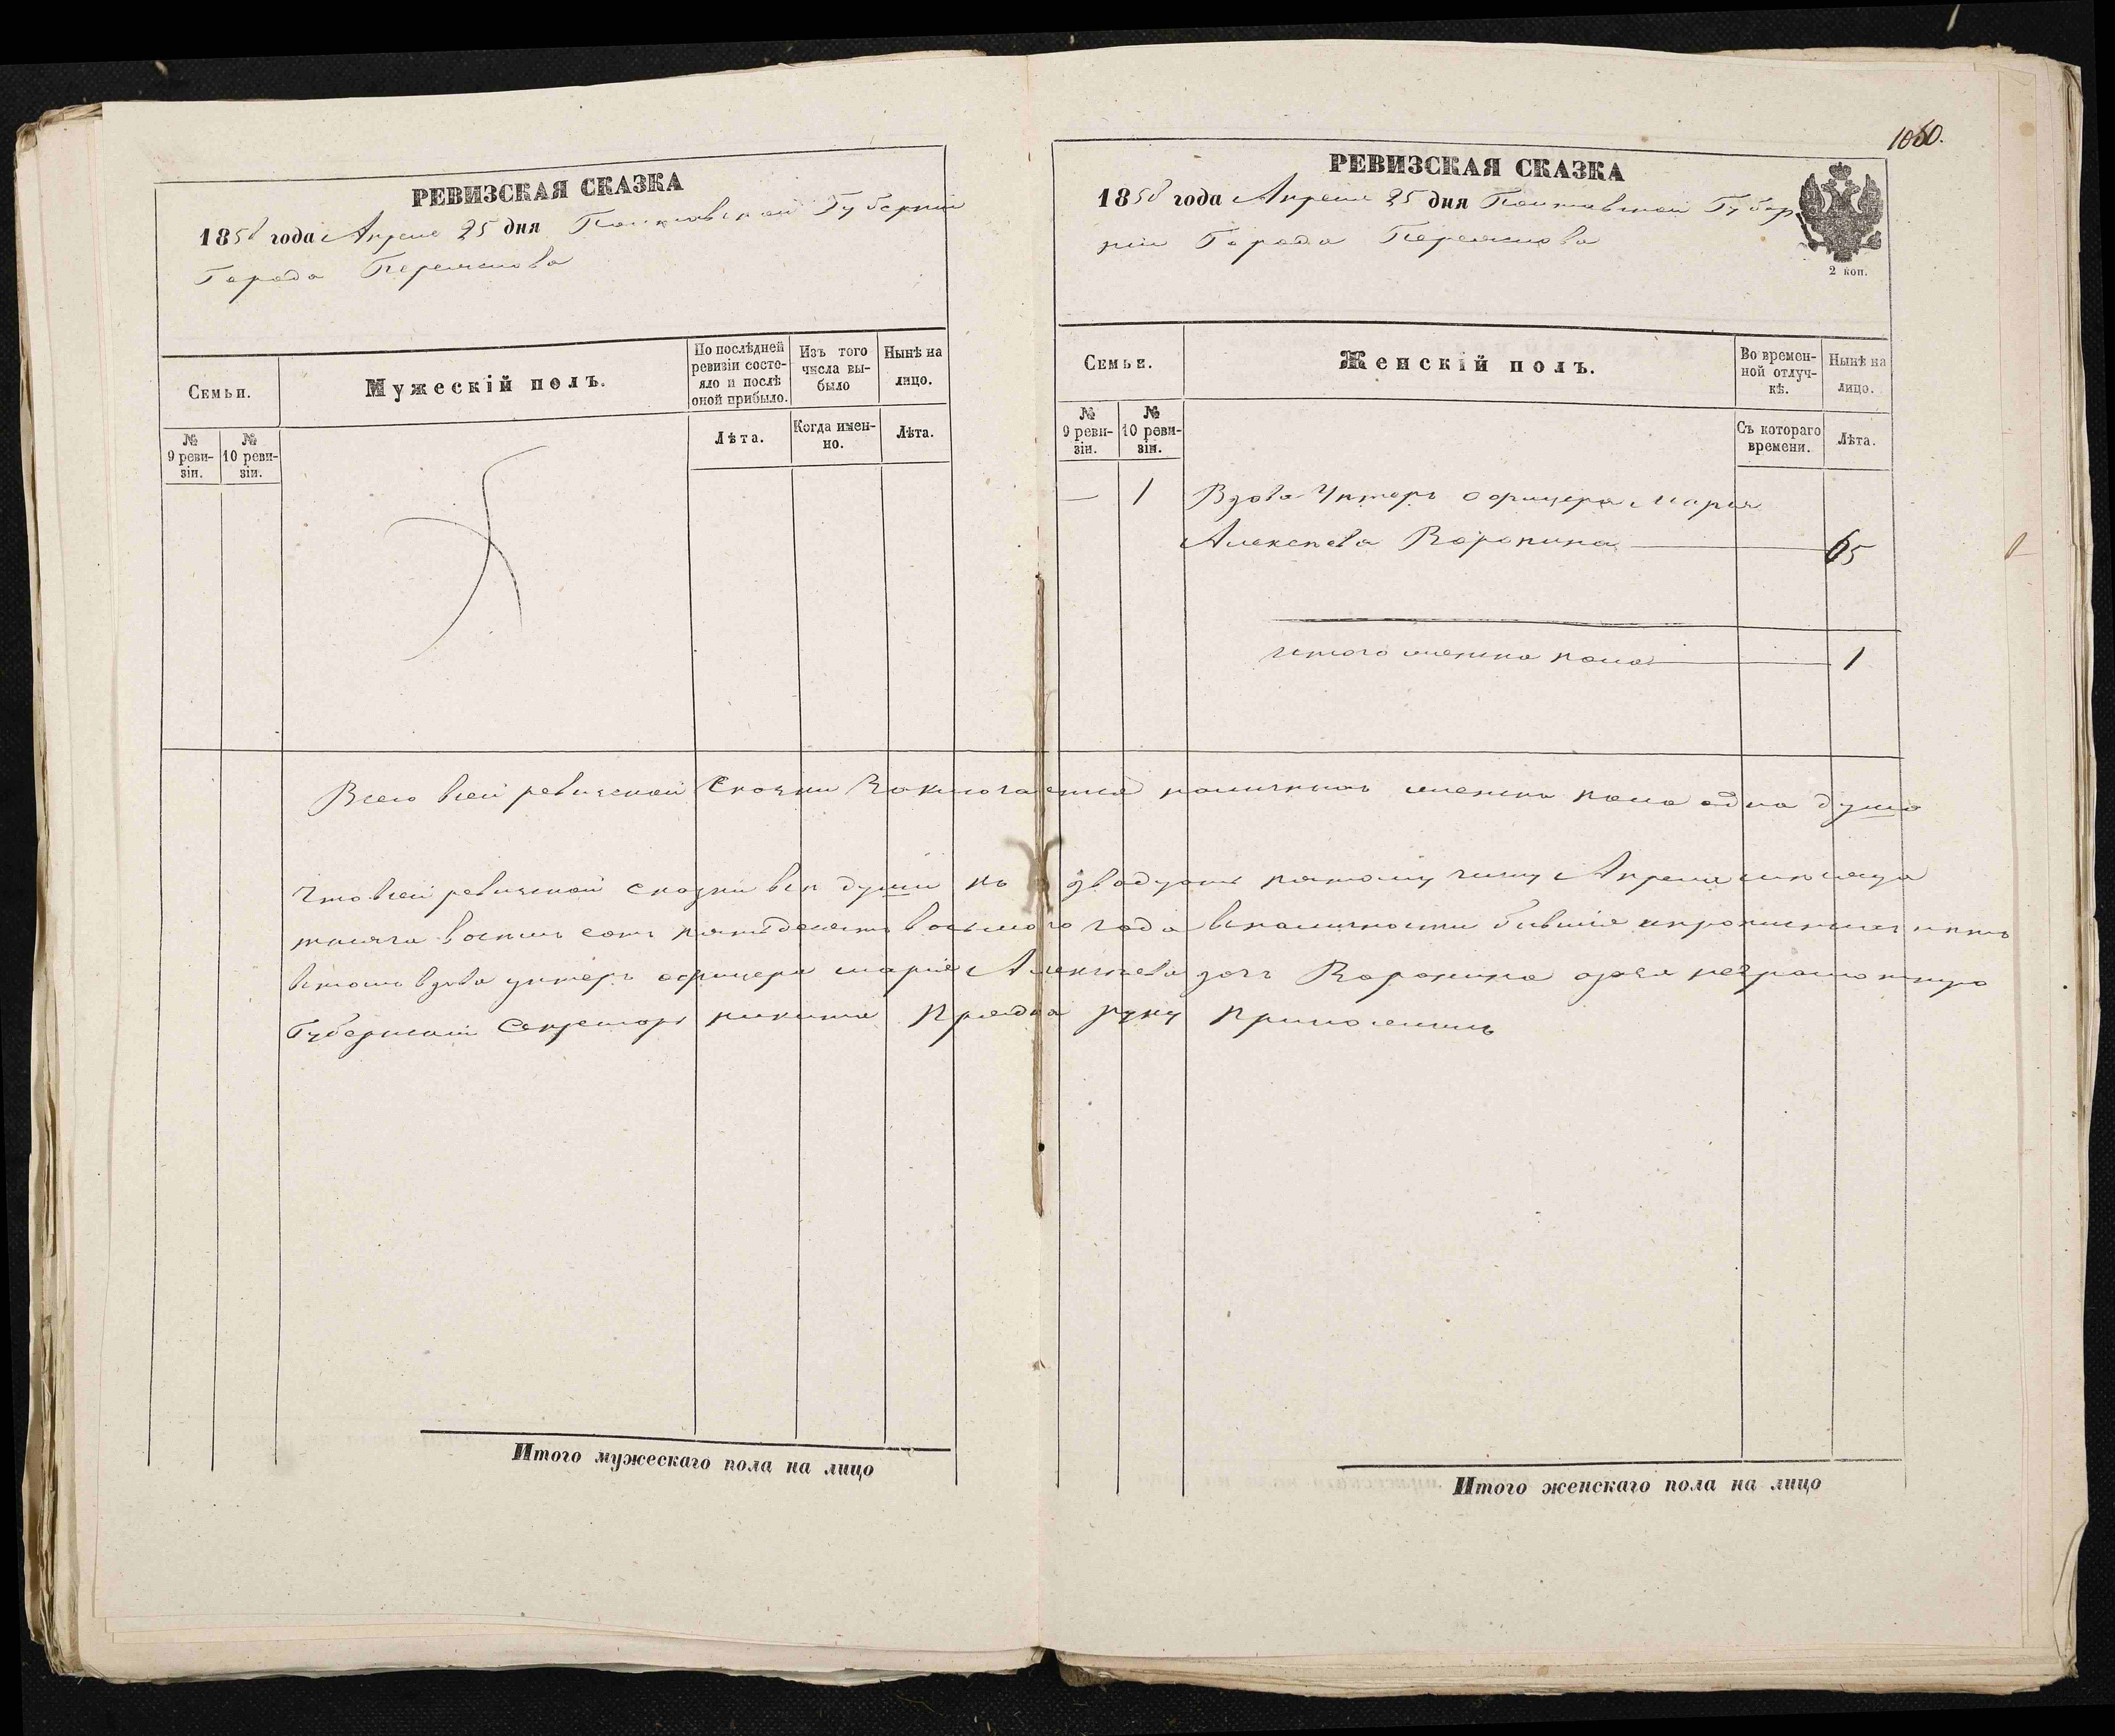 РЕВИЗСКАЯ СКАЗКА
1858 года Апреля 25 дня Полтавской Губернии
Города Переяслова
Семьи.
Мужескій полъ.
По послѣдней ревизіи состояло и послѣ оной прибыло.
Изъ того числа выбыло
Нынѣ на лицо.
№ 9 ревизіи.
№ 10 ревизіи.
Лѣта.
Когда именно.
Лѣта.
Итого мужескаго пола на лицо
1060.
РЕВИЗСКАЯ СКАЗКА
1858 года Апреля 25 дня Полтавской Губер
нии Города Переяслова
2 коп.
Семьи.
Женскій полъ.
Во временной отлучкѣ.
Нынѣ на лицо.
№ 9 ревизіи.
№ 10 ревизіи.
Съ котораго времени.
Лѣта.
— 1 Вдова Унтеръ офицера Марья
Алексева Воронина 65
итого женска пола 1
Всего всей ревизской Сказки Заключается наличных женска пола одна душа
Что всей ревизской сказки все души къ двадцать пятому числу Апреля месяца
тысяча восемь сотъ пятьдесятъ восьмого года вналичности бывшие
втомъ вдова унтеръ офицера мария Алексеева дочъ Воронина неграмотную
Губернский Секретарь никита руку приложилъ
Итого женскаго пола на лицо